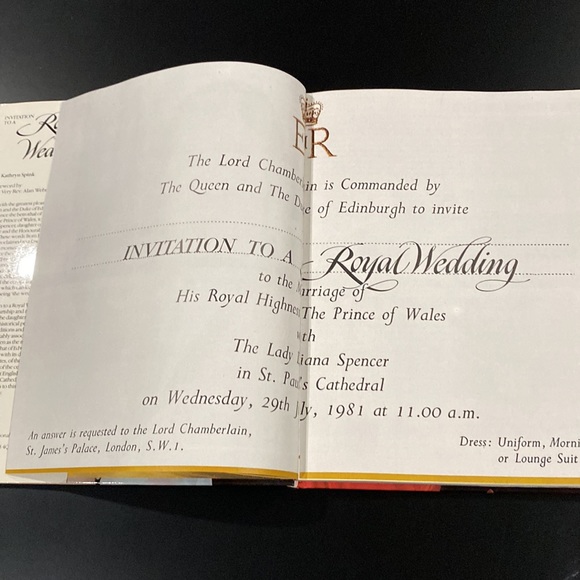 INVITATION
TO A
Kathryn Spink
EIIR
The Lord Chamberlain is Commanded by
The Queen and The Duke of Edinburgh to invite
INVITATION TO A Royal Wedding
to the Marriage of
His Royal Highness The Prince of Wales
with
The Lady Diana Spencer
in St. Paul's Cathedral
on Wednesday, 29th July, 1981 at 11.00 a.m.
An answer is requested to the Lord Chamberlain,
St. James's Palace, London, S.W.1.
Dress: Uniform, Morni
or Lounge Suit